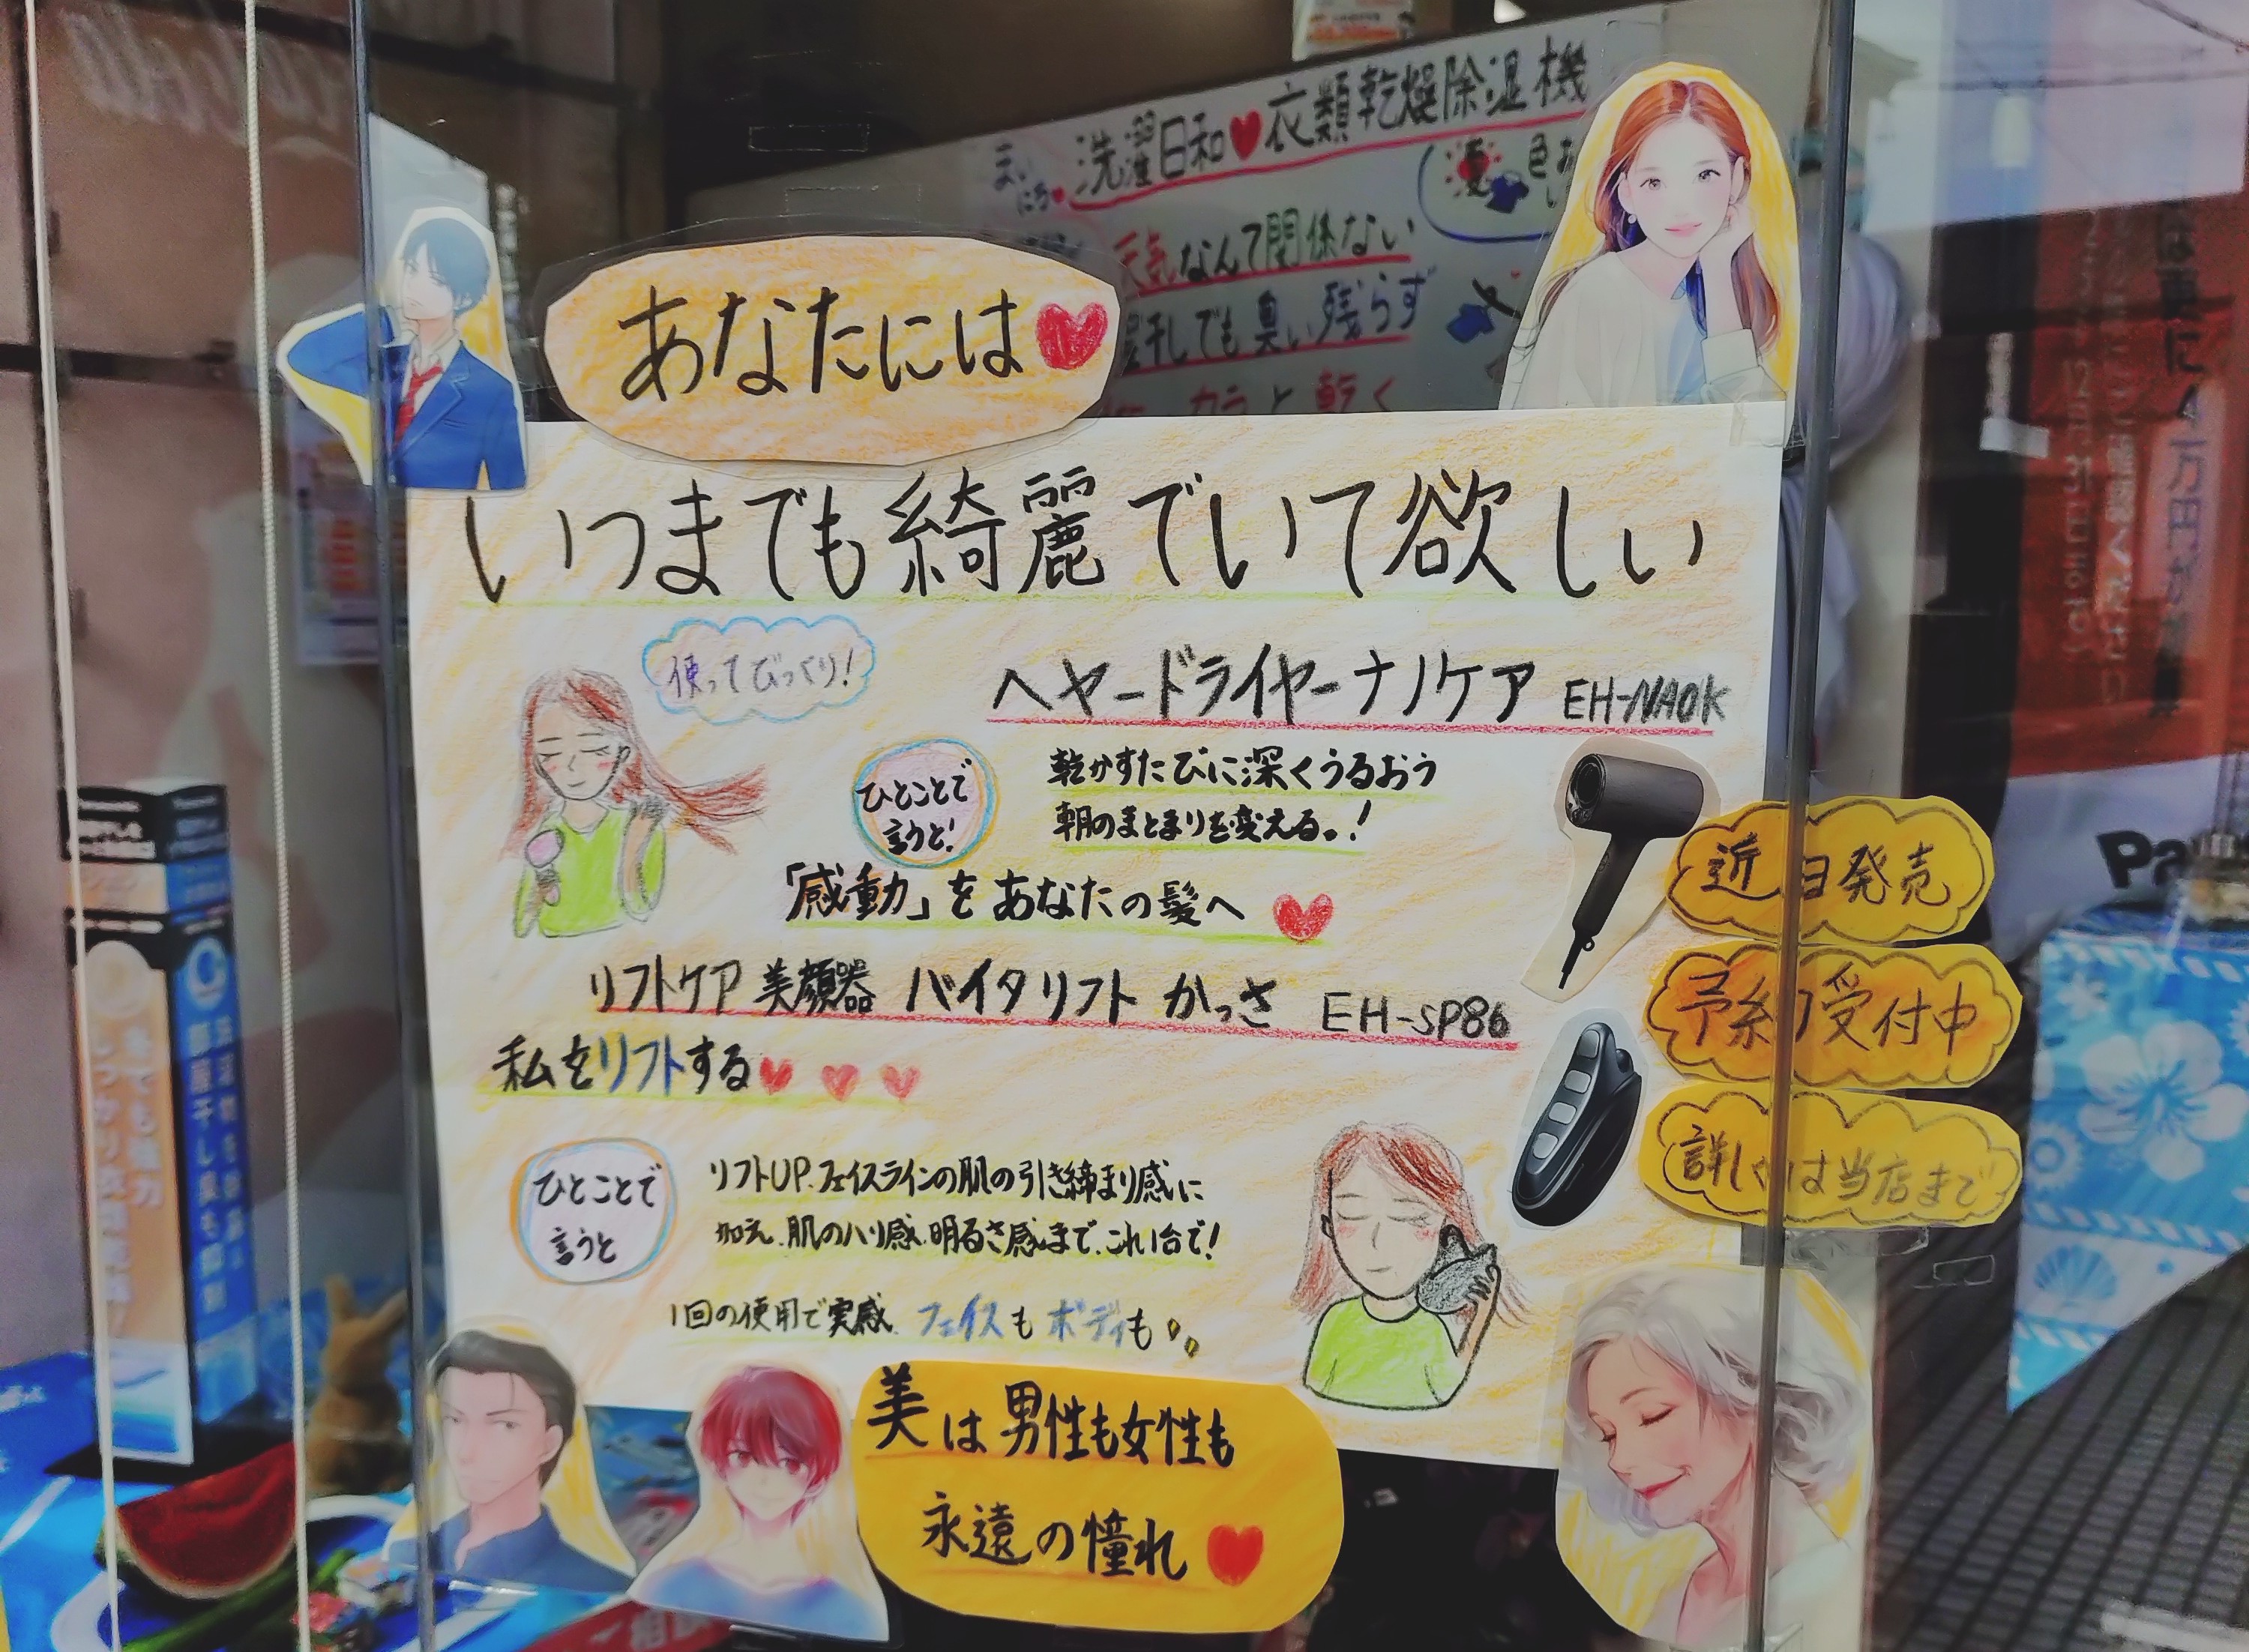 洗濯日和♥衣類乾燥除湿機
まいにち♥
天気なんて関係ない
干しでも臭い残らず
カラッと乾く
あなたには♥
いつまでも綺麗でいて欲しい
使ってびっくり!
ヘヤードライヤーナノケア EH-NA0K
ひとことで
言うと!
乾かすたびに深くうるおう
朝のまとまりを変える。!
「感動」をあなたの髪へ♥
近日発売
予約受付中
詳しくは当店まで
リフトケア 美顔器 バイタリフト かっさ EH-SP86
私をリフトする♥♥♥
ひとことで
言うと
リフトUP.フェイスラインの肌の引き締まり感に
加え.肌のハリ感.明るさ感まで.これ1台で!
1回の使用で実感.フェイスもボディも
美は男性も女性も
永遠の憧れ♥
Pa